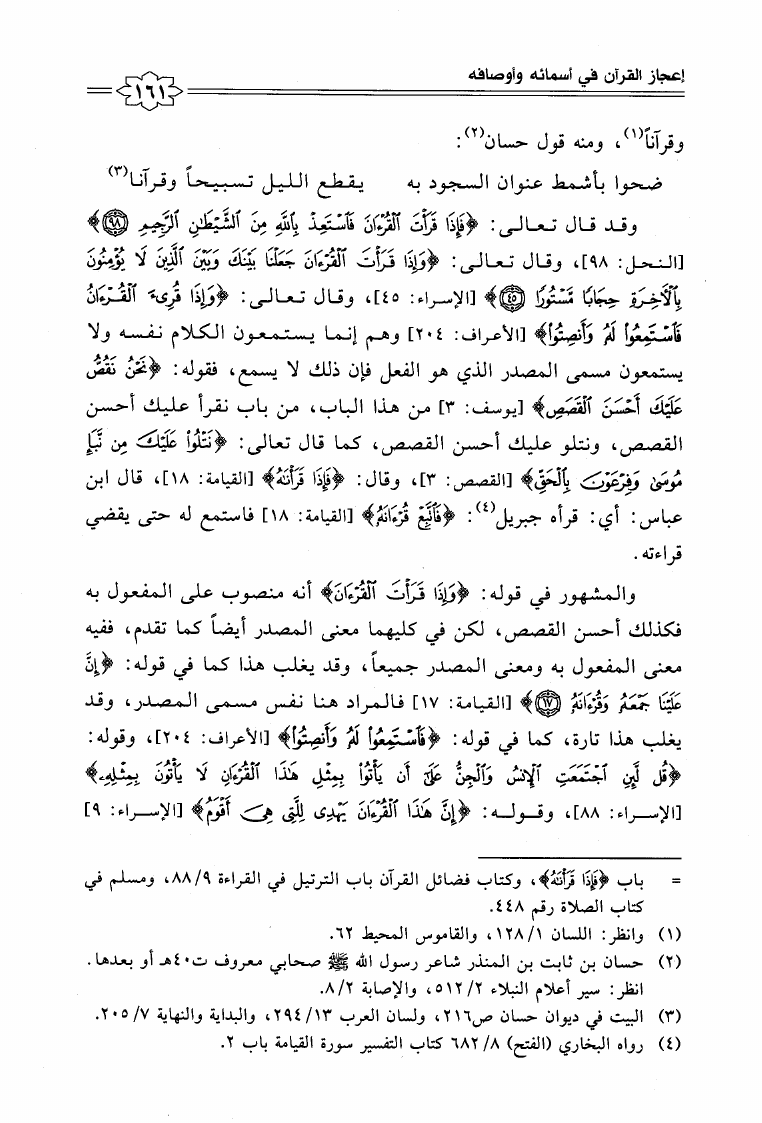 إعجاز القرآن في أسمائه وأوصافه
١٦١
وقرآناً(١)، ومنه قول حسان(٢):
ضحوا بأشمط عنوان السجود به يقطع الليل تسبيحاً وقرآنا(٣)
وقد قال تعالى: ﴿فَإِذَا قَرَأْتَ ٱلْقُرْءَانَ فَٱسْتَعِذْ بِٱللَّهِ مِنَ ٱلشَّيْطَٰنِ ٱلرَّجِيمِ ٩٨﴾
[النحل: ٩٨]، وقال تعالى: ﴿وَإِذَا قَرَأْتَ ٱلْقُرْءَانَ جَعَلْنَا بَيْنَكَ وَبَيْنَ ٱلَّذِينَ لَا يُؤْمِنُونَ
بِٱلْأَخِرَةِ حِجَابًا مَّسْتُورًا ٤٥﴾ [الإسراء: ٤٥]، وقال تعالى: ﴿وَإِذَا قُرِىَٔ ٱلْقُرْءَانُ
فَٱسْتَمِعُوا۟ لَهُۥ وَأَنصِتُوا۟﴾ [الأعراف: ٢٠٤] وهم إنما يستمعون الكلام نفسه ولا
يستمعون مسمى المصدر الذي هو الفعل فإن ذلك لا يسمع، فقوله: ﴿نَحْنُ نَقُصُّ
عَلَيْكَ أَحْسَنَ ٱلْقَصَصِ﴾ [يوسف: ٣] من هذا الباب، من باب نقرأ عليك أحسن
القصص، ونتلو عليك أحسن القصص، كما قال تعالى: ﴿نَتْلُوا۟ عَلَيْكَ مِن نَّبَإِ
مُوسَىٰ وَفِرْعَوْنَ بِٱلْحَقِّ﴾ [القصص: ٣]، وقال: ﴿فَإِذَا قَرَأْنَٰهُ﴾ [القيامة: ١٨]، قال ابن
عباس: أي: قرأه جبريل(٤): ﴿فَٱتَّبِعْ قُرْءَانَهُۥ﴾ [القيامة: ١٨] فاستمع له حتى يقضي
قراءته.
والمشهور في قوله: ﴿وَإِذَا قَرَأْتَ ٱلْقُرْءَانَ﴾ أنه منصوب على المفعول به
فكذلك أحسن القصص، لكن في كليهما معنى المصدر أيضاً كما تقدم، ففيه
معنى المفعول به ومعنى المصدر جميعاً، وقد يغلب هذا كما في قوله: ﴿إِنَّ
عَلَيْنَا جَمْعَهُۥ وَقُرْءَانَهُۥ ١٧﴾ [القيامة: ١٧] فالمراد هنا نفس مسمى المصدر، وقد
يغلب هذا تارة، كما في قوله: ﴿فَٱسْتَمِعُوا۟ لَهُۥ وَأَنصِتُوا۟﴾ [الأعراف: ٢٠٤]، وقوله:
﴿قُل لَّئِنِ ٱجْتَمَعَتِ ٱلْإِنسُ وَٱلْجِنُّ عَلَىٰٓ أَن يَأْتُوا۟ بِمِثْلِ هَٰذَا ٱلْقُرْءَانِ لَا يَأْتُونَ بِمِثْلِهِۦ﴾
[الإسراء: ٨٨]، وقوله: ﴿إِنَّ هَٰذَا ٱلْقُرْءَانَ يَهْدِى لِلَّتِى هِىَ أَقْوَمُ﴾ [الإسراء: ٩]
= باب ﴿فَإِذَا قَرَأْنَٰهُ﴾، وكتاب فضائل القرآن باب الترتيل في القراءة ٨٨/٩، ومسلم في
كتاب الصلاة رقم ٤٤٨.
(١) وانظر: اللسان ١٢٨/١، والقاموس المحيط ٦٢.
(٢) حسان بن ثابت بن المنذر شاعر رسول الله ﷺ صحابي معروف ت٤٠هـ أو بعدها.
انظر: سير أعلام النبلاء ٥١٢/٢، والإصابة ٨/٢.
(٣) البيت في ديوان حسان ص٢١٦، ولسان العرب ٢٩٤/١٣، والبداية والنهاية ٢٠٥/٧.
(٤) رواه البخاري (الفتح) ٦٨٢/٨ كتاب التفسير سورة القيامة باب ٢.